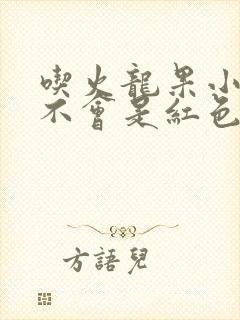 喫火龍果小
不會是紅色
方語兒